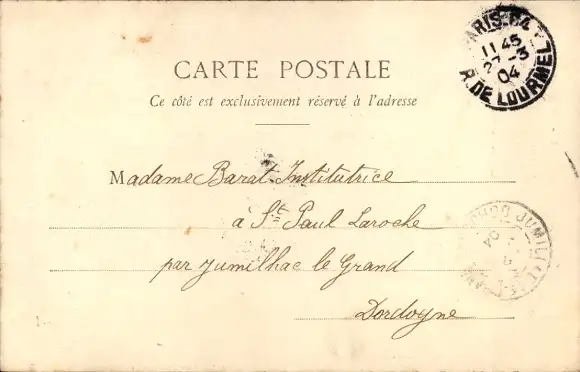 PARIS-84
11 45
27-3
04
R. DE LOURMEL
CARTE POSTALE
Ce côté est exclusivement réservé à l'adresse
Madame Barat Institutrice
à St Paul Laroche
par Jumilhac le Grand
Dordogne
04